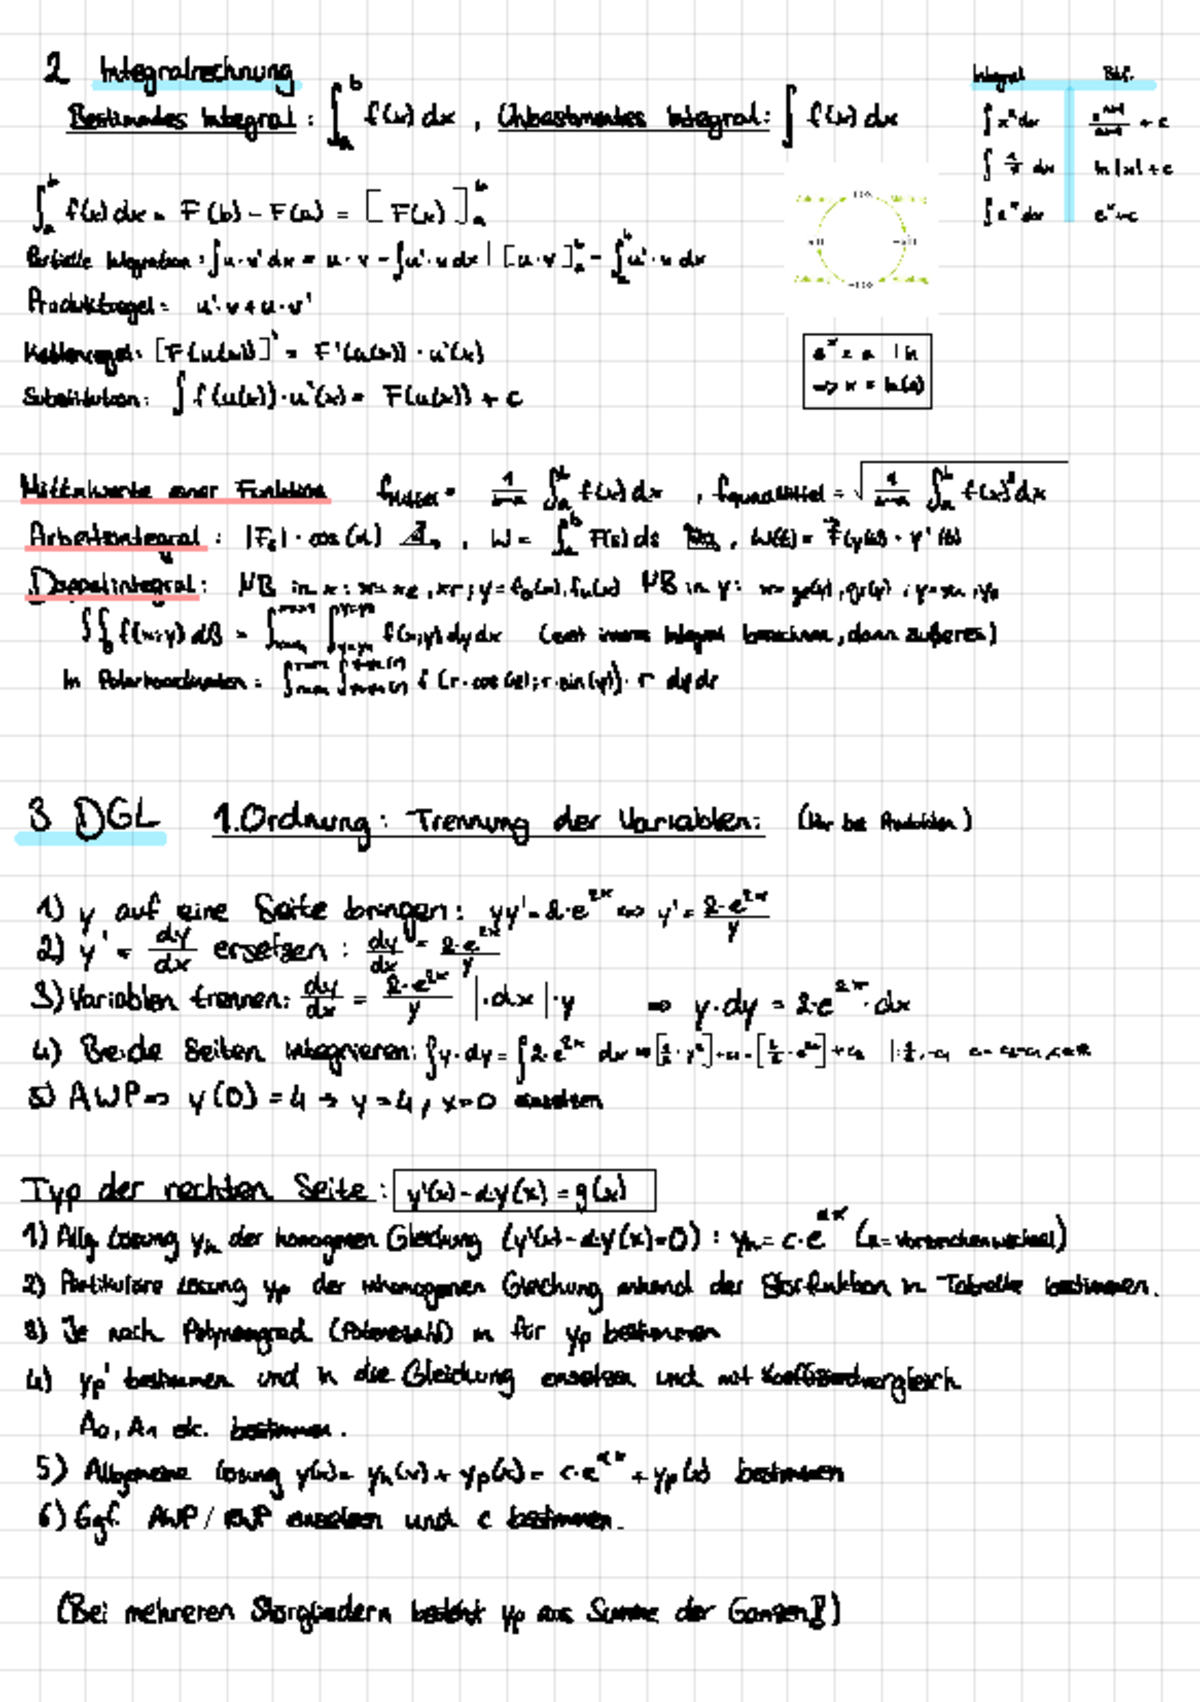 2 Integralrechnung
Integral
Bestimmtes Integral: ∫_a^b f(x) dx , Unbestimmtes Integral: ∫ f(x) dx
∫ x^n dx x^(n+1)/(n+1) + c
∫ 1/x dx ln|x| + c
∫ e^x dx e^x + c
∫_a^b f(x) dx = F(b) - F(a) = [F(x)]_a^b
Partielle Integration: ∫ u·v' dx = u·v - ∫ u'·v dx | [u·v]_a^b - ∫_a^b u'·v dx
Produktregel = u'·v + u·v'
Kettenregel: [F(u(x))]' = F'(u(x)) · u'(x)
e^x = a | ln
=> x = ln(a)
Substitution: ∫ f(u(x))·u'(x) = F(u(x)) + c
Mittelwerte einer Funktion f = 1/(b-a) ∫_a^b f(x) dx , = √(1/(b-a) ∫_a^b f(x)² dx)
Arbeitsintegral: · cos(α) , W = ∫_a^b F(s) ds
Doppelintegral: NB in x: NB in y:
∫∫ f(x;y) dB = ∫ ∫ f(x;y) dy dx (erst inneres Integral berechnen, dann äußeres)
In Polarkoordinaten = ∫ ∫ f(r·cos(φ); r·sin(φ)) · r dφ dr
3 DGL 1.Ordnung: Trennung der Variablen: (Nur bei Produkten)
1) y auf eine Seite bringen: yy' = 2·e^(2x) <=> y' = (2·e^(2x))/y
2) y' = dy/dx ersetzen: dy/dx = (2·e^(2x))/y
3) Variablen trennen: dy/dx = (2·e^(2x))/y |·dx |·y => y·dy = 2·e^(2x)·dx
4) Beide Seiten integrieren: ∫ y·dy = ∫ 2·e^(2x) dx
5) AWP => y(0) = 4 → y = 4, x = 0 einsetzen
Typ der rechten Seite: y'(x) - a·y(x) = g(x)
1) Allg. Lösung y_h der homogenen Gleichung (y'(x) - a·y(x) = 0) : y_h = c·e^(ax) (a = Vorzeichenwechsel)
2) Partikuläre Lösung y_p der inhomogenen Gleichung anhand der Störfunktion in Tabelle bestimmen.
3) Je nach Polynomgrad (Potenzzahl) n für y_p bestimmen
4) y_p' bestimmen und in die Gleichung einsetzen und mit Koeffizientvergleich
A_0, A_1 etc. bestimmen.
5) Allgemeine Lösung y(x) = y_h(x) + y_p(x) = c·e^(ax) + y_p(x) bestimmen
6) Ggf. AWP / RWP einsetzen und c bestimmen.
(Bei mehreren Störgliedern besteht y_p aus Summe der Ganzen!)